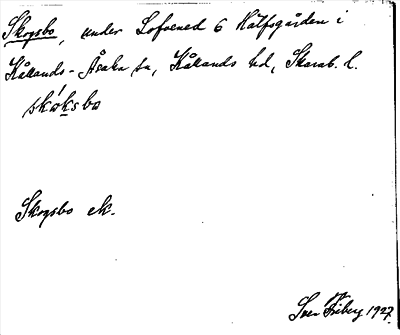 Skogsbo, under Lofvened 6 Hälfsgården i
Kållands-Åsaka sn, Kållands hd, Skarab. l.
skóksbo
Skogsbo ek.
Sven Friberg 1927.